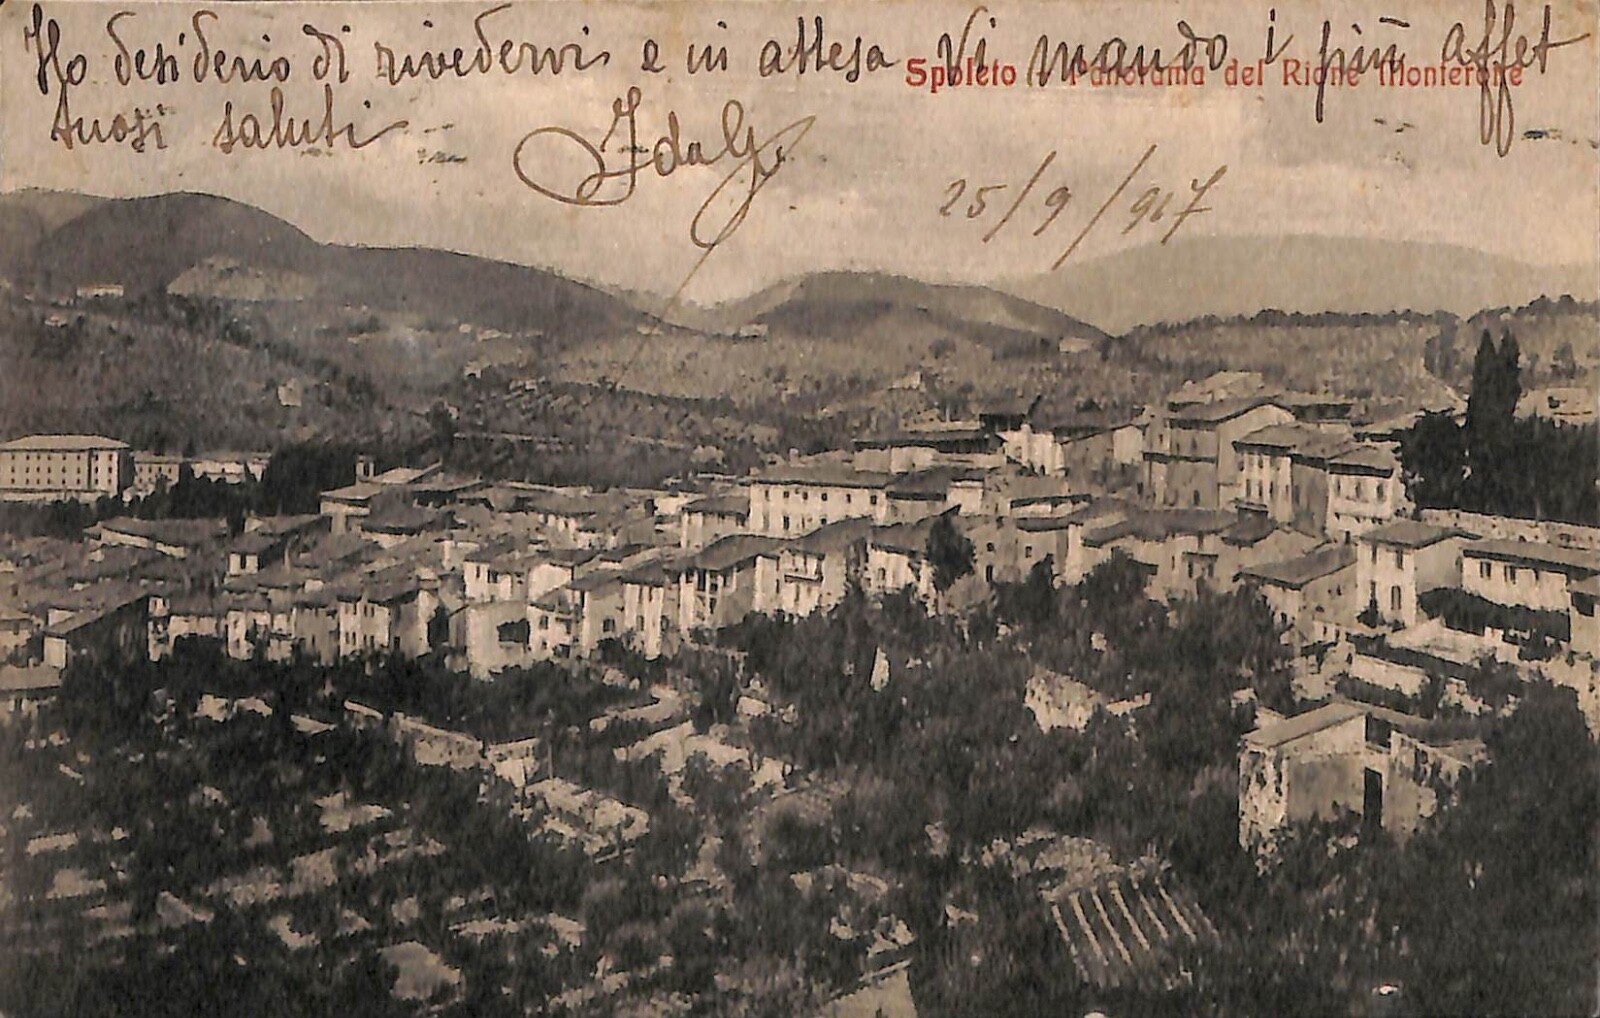 Ho desiderio di rivedervi e in attesa Vi mando i più affet
tuosi saluti
Spoleto Panorama del Rione Monterone
Ida G.
25/9/917